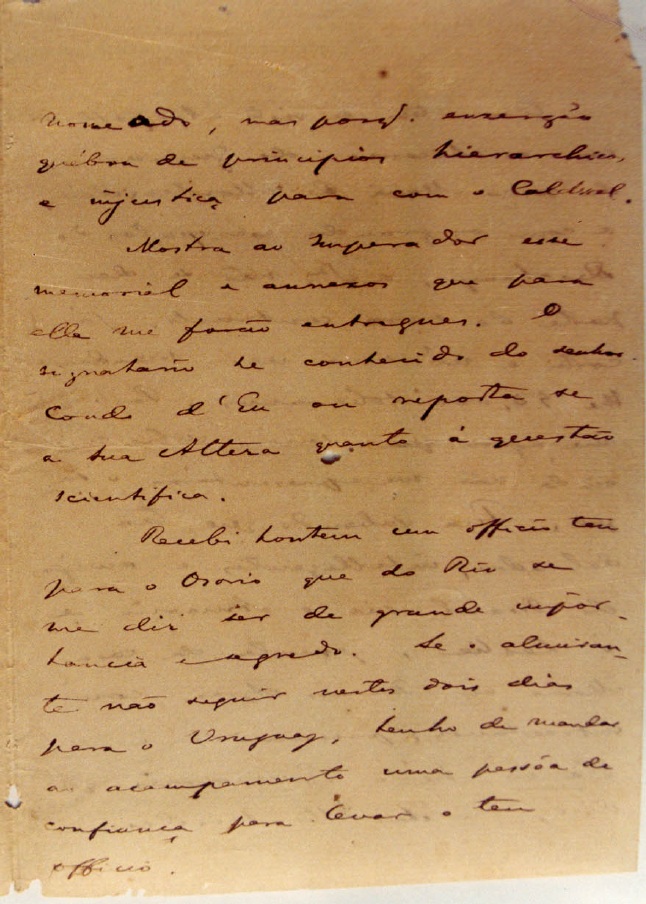 nomeado, mas porq. enxergão
quebra de principios hierarchicos
e injustiça para com o Caldwel.
Mostra ao Imperador esse
memorial e annexos que para
elle me forão entregues. O
signatario he conhecido do senhor
Conde d'Eu ou reporta se
a sua Alteza quanto á questão
scientifica.
Recebi hontem um officio teu
para o Osorio que do Rio se
me diz ser de grande impor-
tancia e segredo. Se o almiran-
te não seguir nestes dois dias
para o Uruguay, tenho de mandar
ao acampamento uma pessôa de
confiança para levar o teu
officio.